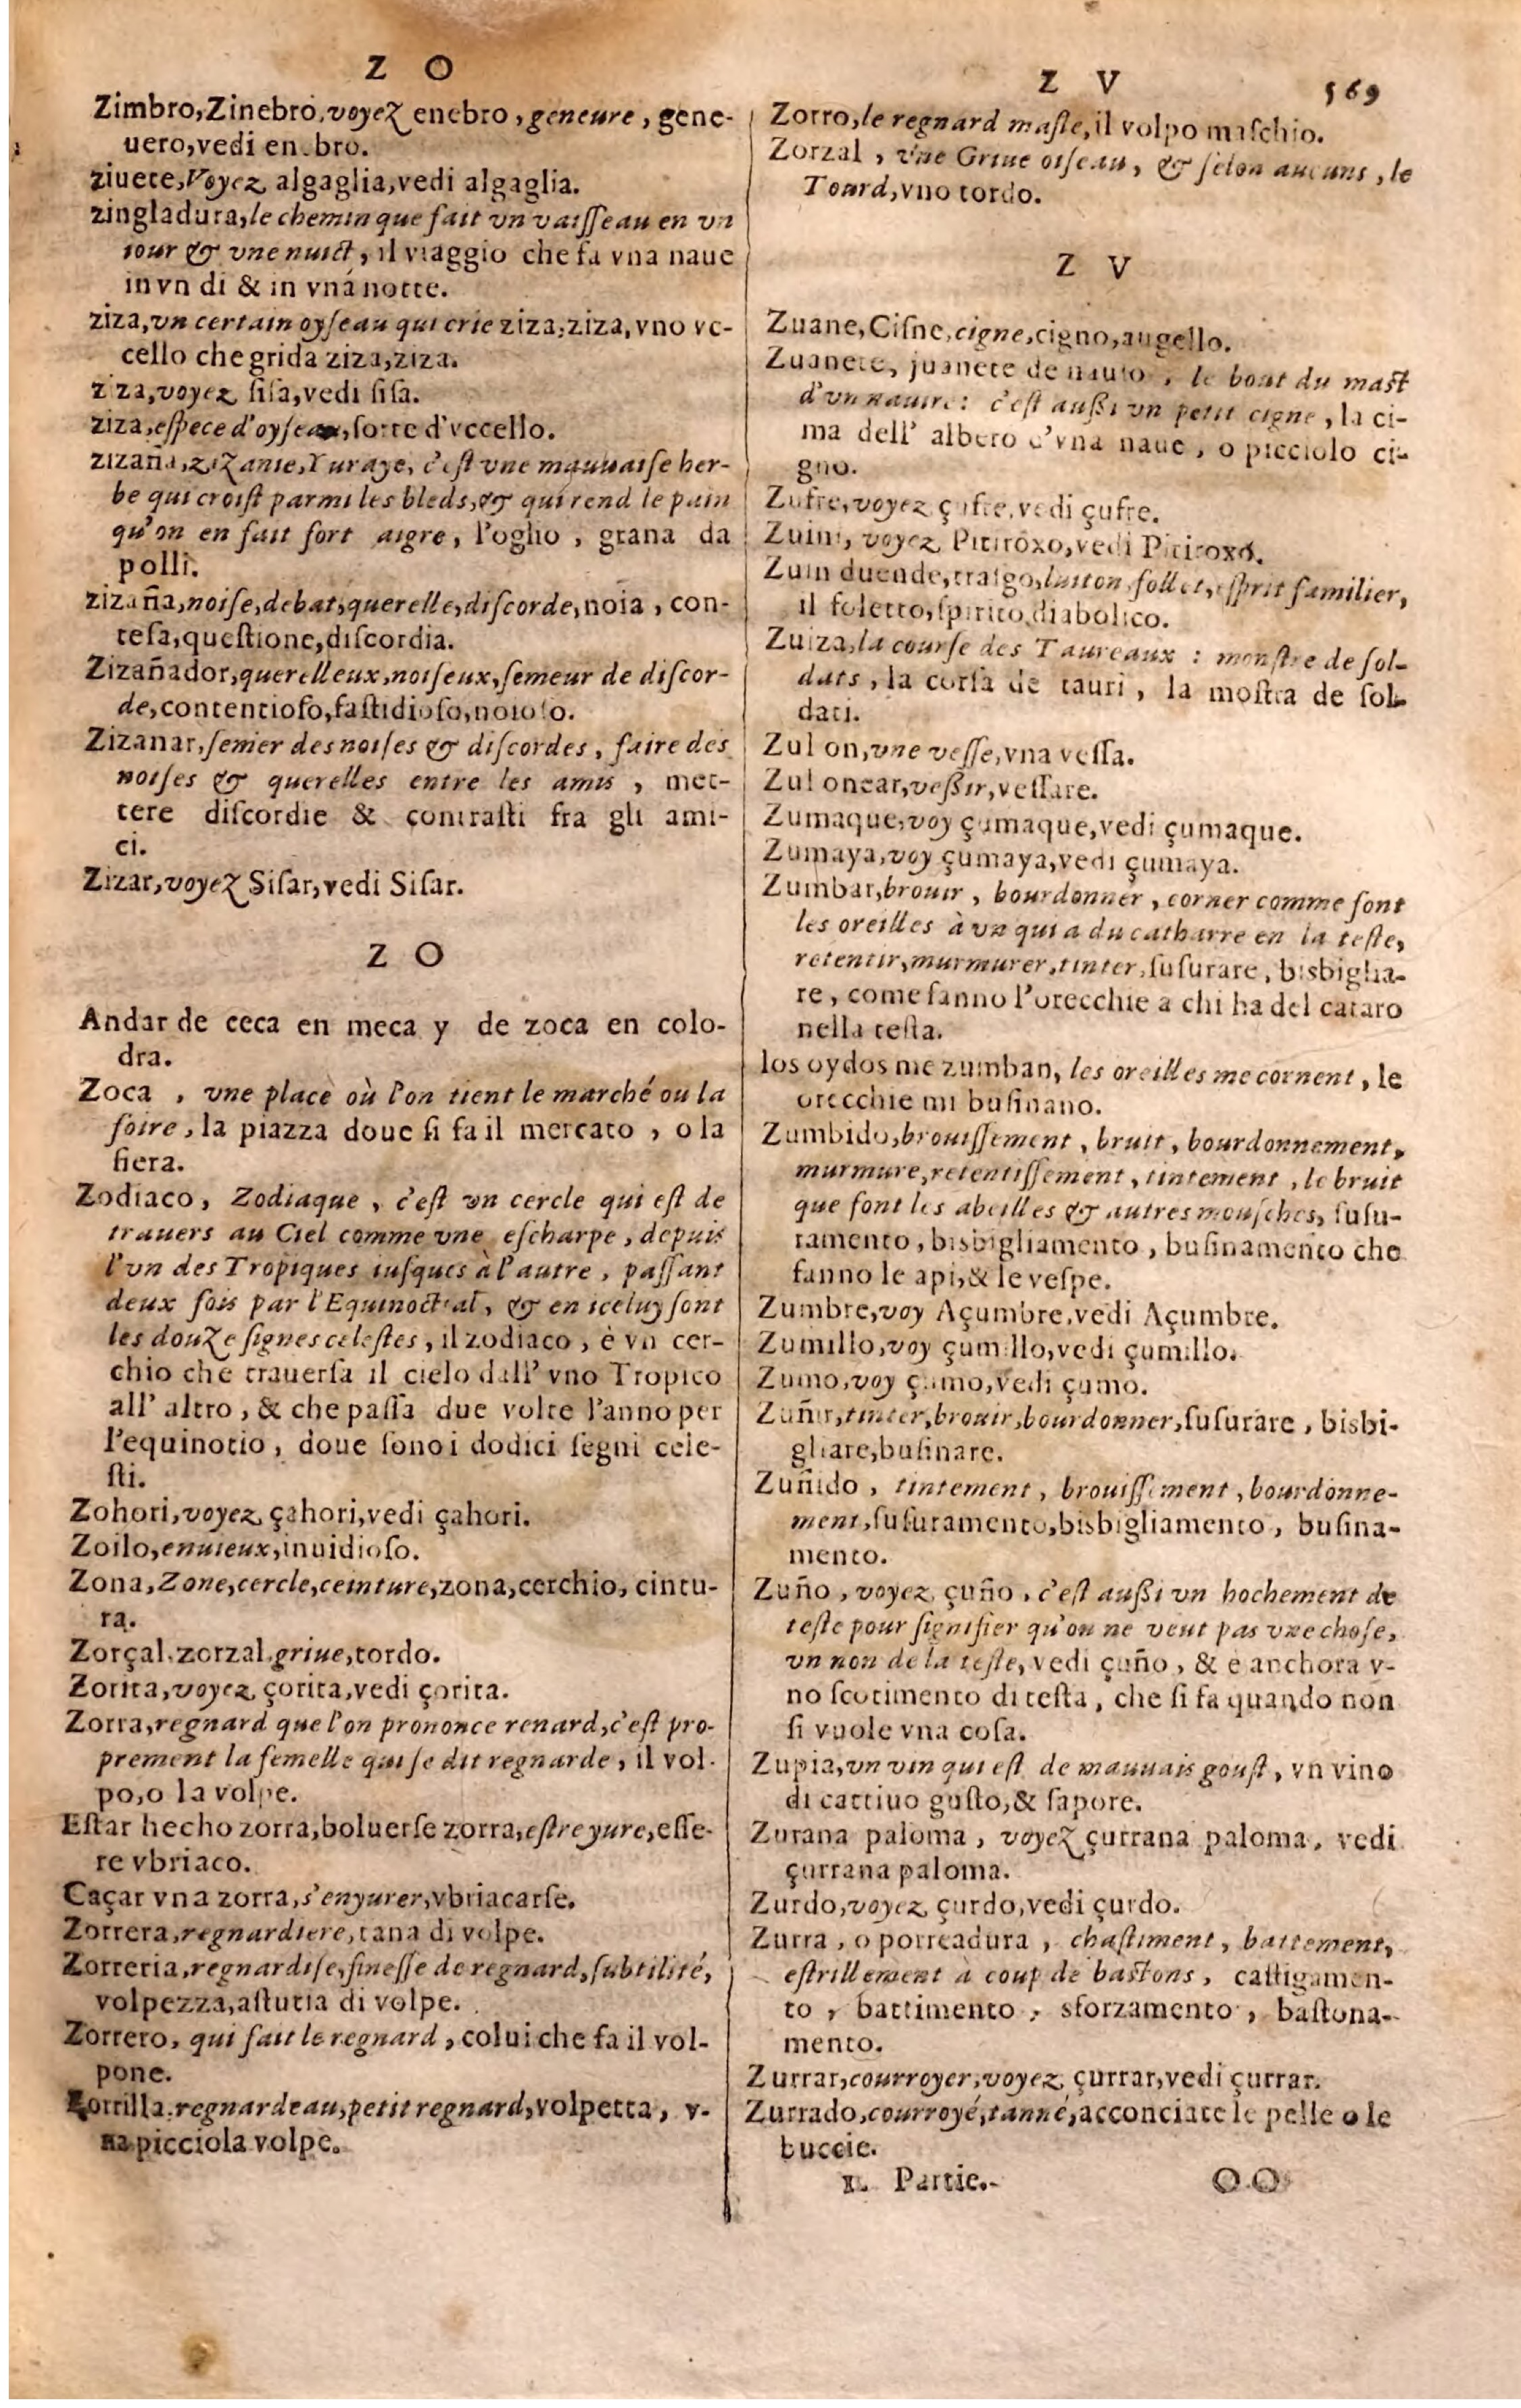 Z O
Zimbro, Zinebro, voyez enebro, geneure, gene-
uero, vedi enebro.
ziuete, Voyez algaglia, vedi algaglia.
zingladura, le chemin que fait vn vaiſſeau en vn
iour & vne nuict, il viaggio che fa vna naue
in vn di & in vná notte.
ziza, vn certain oyſeau qui crie ziza, ziza, vno vc-
cello che grida ziza, ziza.
ziza, voyez ſiſa, vedi ſiſa.
ziza, eſpece d'oyſeau, ſorte d'vccello.
zizaña, zizanie, Yuraye, c'eſt vne mauuaiſe her-
be qui croiſt parmi les bleds, & qui rend le pain
qu'on en fait fort aigre, l'oglio, grana da
polli.
zizaña, noiſe, debat, querelle, diſcorde, noia, con-
teſa, queſtione, diſcordia.
Zizañador, querelleux, noiſeux, ſemeur de diſcor-
de, contentioſo, faſtidioſo, noioſo.
Zizanar, ſemer des noiſes & diſcordes, faire des
noiſes & querelles entre les amis, met-
tere diſcordie & contraſti fra gli ami-
ci.
Zizar, voyez Siſar, vedi Siſar.
Z O
Andar de ceca en meca y de zoca en colo-
dra.
Zoca, vne place où l'on tient le marché ou la
foire, la piazza doue ſi fa il mercato, o la
fiera.
Zodiaco, Zodiaque, c'eſt vn cercle qui eſt de
trauers au Ciel comme vne eſcharpe, depuis
l'vn des Tropiques iuſques à l'autre, paſſant
deux fois par l'Equinoctial, & en iceluy ſont
les douze ſignes celeſtes, il zodiaco, è vn cer-
chio che trauerſa il cielo dall' vno Tropico
all' altro, & che paſſa due volte l'anno per
l'equinotio, doue ſono i dodici ſegni cele-
ſti.
Zohori, voyez çahori, vedi çahori.
Zoilo, enuieux, inuidioſo.
Zona, Zone, cercle, ceinture, zona, cerchio, cintu-
ra.
Zorçal, zorzal, griue, tordo.
Zorita, voyez çorita, vedi çorita.
Zorra, regnard que l'on prononce renard, c'eſt pro-
prement la femelle qui ſe dit regnarde, il vol-
po, o la volpe.
Eſtar hecho zorra, boluerſe zorra, eſtre yure, eſſe-
re vbriaco.
Caçar vna zorra, s'enyurer, vbriacarſe.
Zorrera, regnardiere, tana di volpe.
Zorreria, regnardiſe, fineſſe de regnard, ſubtilité,
volpezza, aſtutia di volpe.
Zorrero, qui fait le regnard, colui che fa il vol-
pone.
Zorrilla, regnardeau, petit regnard, volpetta, v-
na picciola volpe.
Z V 569
Zorro, le regnard maſle, il volpo maſchio.
Zorzal, vne Griue oiſeau, & ſelon aucuns, le
Tourd, vno tordo.
Z V
Zuane, Ciſne, cigne, cigno, augello.
Zuanete, juanete de nauio, le bout du maſt
d'vn nauire: c'eſt auſſi vn petit cigne, la ci-
ma dell' albero d'vna naue, o picciolo ci-
gno.
Zufre, voyez çufre, vedi çufre.
Zuini, voyez Pitirôxo, vedi Pitiroxo.
Zuin duende, traſgo, luiton, follet, eſprit familier,
il foletto, ſpirito diabolico.
Zuiza, la courſe des Taureaux: monſtre de ſol-
dats, la corſa de tauri, la moſtra de ſol-
dati.
Zul on, vne veſſe, vna veſſa.
Zul onear, veſſir, veſſare.
Zumaque, voy çumaque, vedi çumaque.
Zumaya, voy çumaya, vedi çumaya.
Zumbar, brouir, bourdonner, corner comme font
les oreilles à vn qui a du catharre en la teſte,
retentir, murmurer, tinter, ſuſurare, bisbiglia-
re, come fanno l'orecchie a chi ha del cataro
nella teſta.
los oydos me zumban, les oreilles me cornent, le
orecchie mi buſinano.
Zumbido, brouiſſement, bruit, bourdonnement,
murmure, retentiſſement, tintement, le bruit
que font les abeilles & autres mouſches, ſuſu-
ramento, bisbigliamento, buſinamento che
fanno le api, & le veſpe.
Zumbre, voy Açumbre, vedi Açumbre.
Zumillo, voy çumillo, vedi çumillo.
Zumo, voy çumo, vedi çumo.
Zuñir, tinter, brouir, bourdonner, ſuſurare, bisbi-
gliare, buſinare.
Zuñido, tintement, brouiſſement, bourdonne-
ment, ſuſuramento, bisbigliamento, buſina-
mento.
Zuño, voyez çuño, c'eſt auſſi vn hochement de
teſte pour ſignifier qu'on ne veut pas vne choſe,
vn non de la teſte, vedi çuño, & è anchora v-
no ſcotimento di teſta, che ſi fa quando non
ſi vuole vna coſa.
Zupia, vn vin qui eſt de mauuais gouſt, vn vino
di cattiuo guſto, & ſapore.
Zurana paloma, voyez çurrana paloma, vedi
çurrana paloma.
Zurdo, voyez çurdo, vedi çurdo.
Zurra, o porreadura, chaſtiment, battement,
eſtrillement à coup de baſtons, caſtigamen-
to, battimento, sforzamento, baſtona-
mento.
Zurrar, courroyer, voyez çurrar, vedi çurrar.
Zurrado, courroyé, tanné, acconciate le pelle o le
buccie.
II. Partie. OO